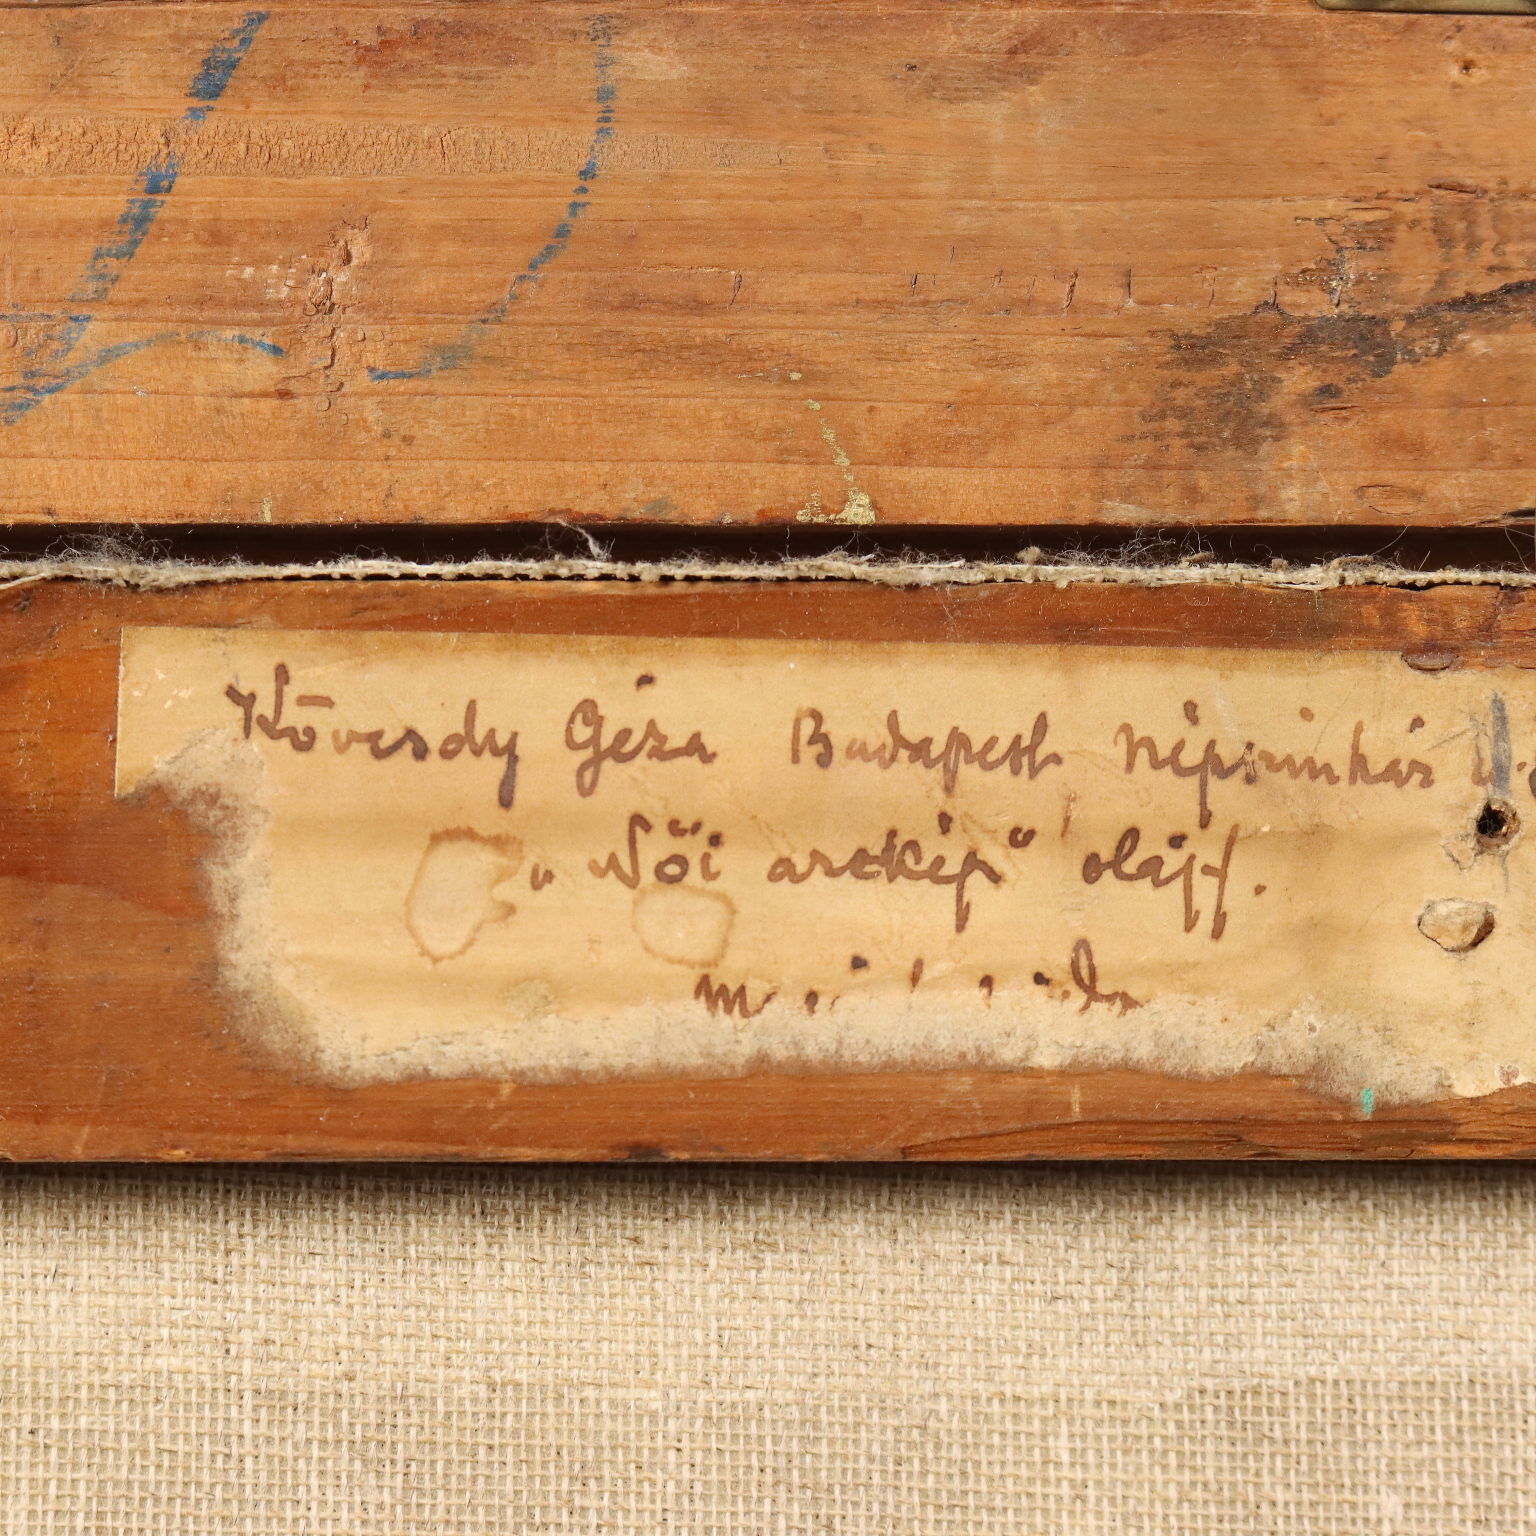 Kövesdy Géza Budapest Népszinház u.
„Női arckép" olajf.